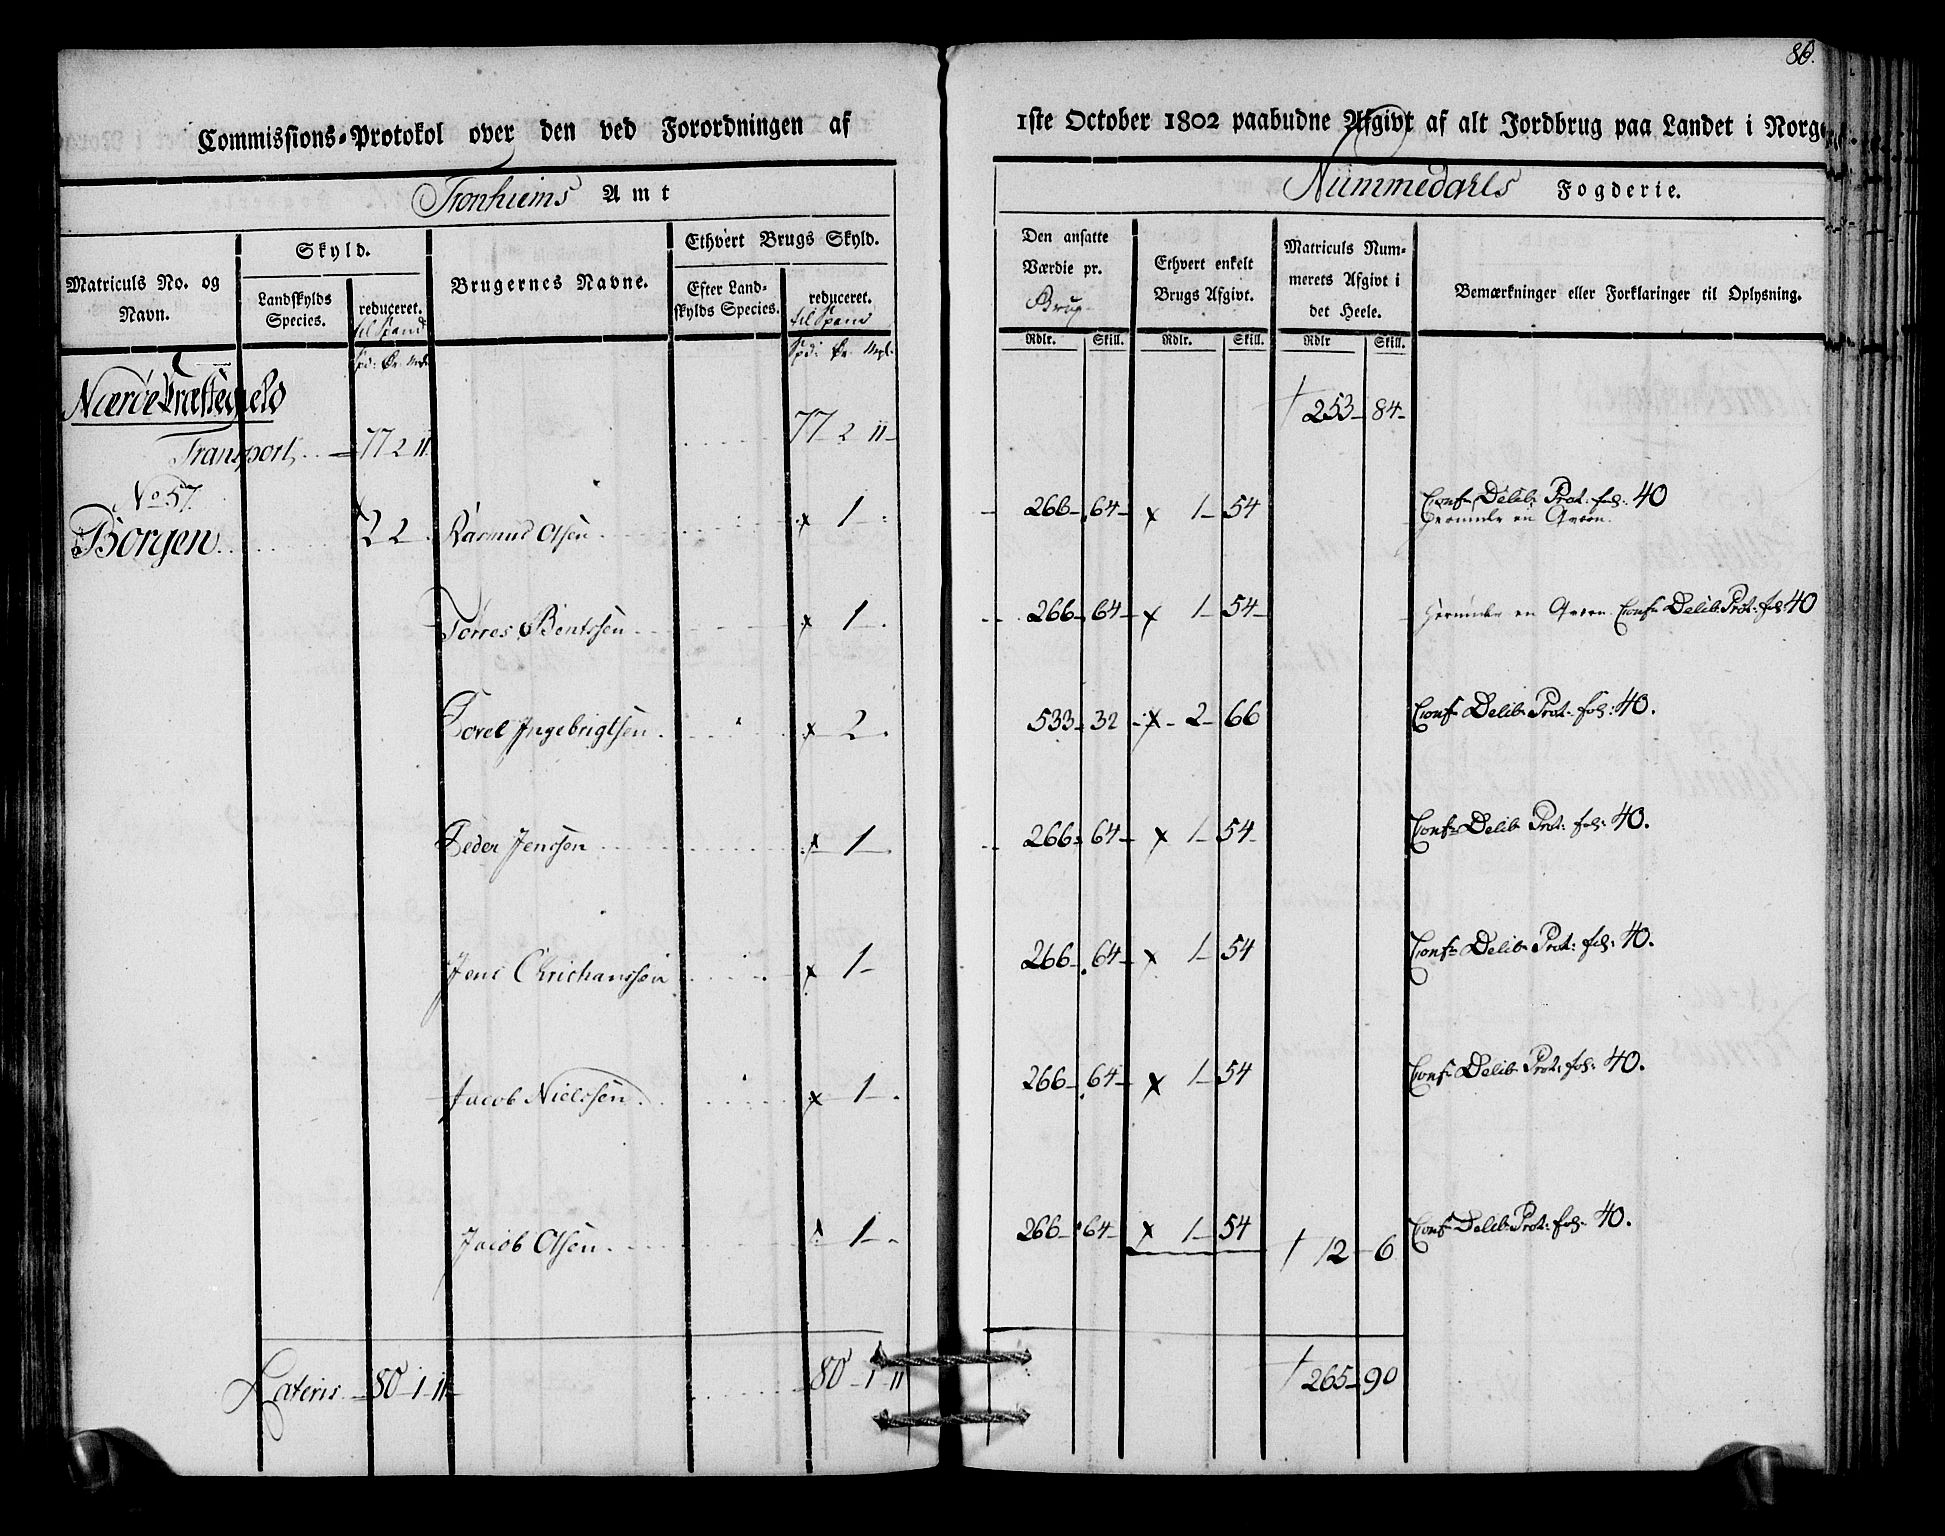 86.
Commissions-Protokol over den ved Forordningen af 1ste October 1802 paabudne Afgivt af alt Jordbrug paa Landet i Norge
Tronhiems Amt
Nummedahls Fogderie.
Matriculs No. og Navn.
Skyld.
Landskylds Species.
reduceret.
til Spand
Spd: Ør. Mgl.
Brugernes Navne.
Ethvert Brugs Skyld.
Efter Landskylds Species.
reduceret.
til Spand
Spd: Ør. Mgl.
Den ansatte Værdie pr.
Brug
Rdlr. Skill.
Ethvert enkelt Brugs Afgivt.
Rdlr. Skill.
Matriculs Nummerets Afgivt i det Heele.
Rdlr Skill.
Bemærkninger eller Forklaringer til Oplysning.
Nærøe Præstegield
Transport 77 2 11 77 2 11 253 84
No 57.
Borgen 2 2 Rasmus Olsen x 1 266 64 x 1 54 Conf Delib: Prot: fol: 40
herunder en Qvern.
Torres Bentssen x 1 266 64 x 1 54 herunder en Qvern Conf Delib Prot: fol 40
Povel Ingebrigtsen x 2 533 32 x 2 66 Conf Delib Prot: fol: 40.
Peder Jenssen x 1 266 64 x 1 54 Conf Delib Prot: fol: 40.
Jens Christianssen x 1 266 64 x 1 54 Conf Delib Prot: fol: 40.
Jacob Nielssen x 1 266 64 x 1 54 Conf Delib Prot: fol: 40.
Jacob Olsen x 1 266 64 x 1 54 12 6 Conf Delib Prot: fol: 40.
Lateris 80 1 11 80 1 11 265 90